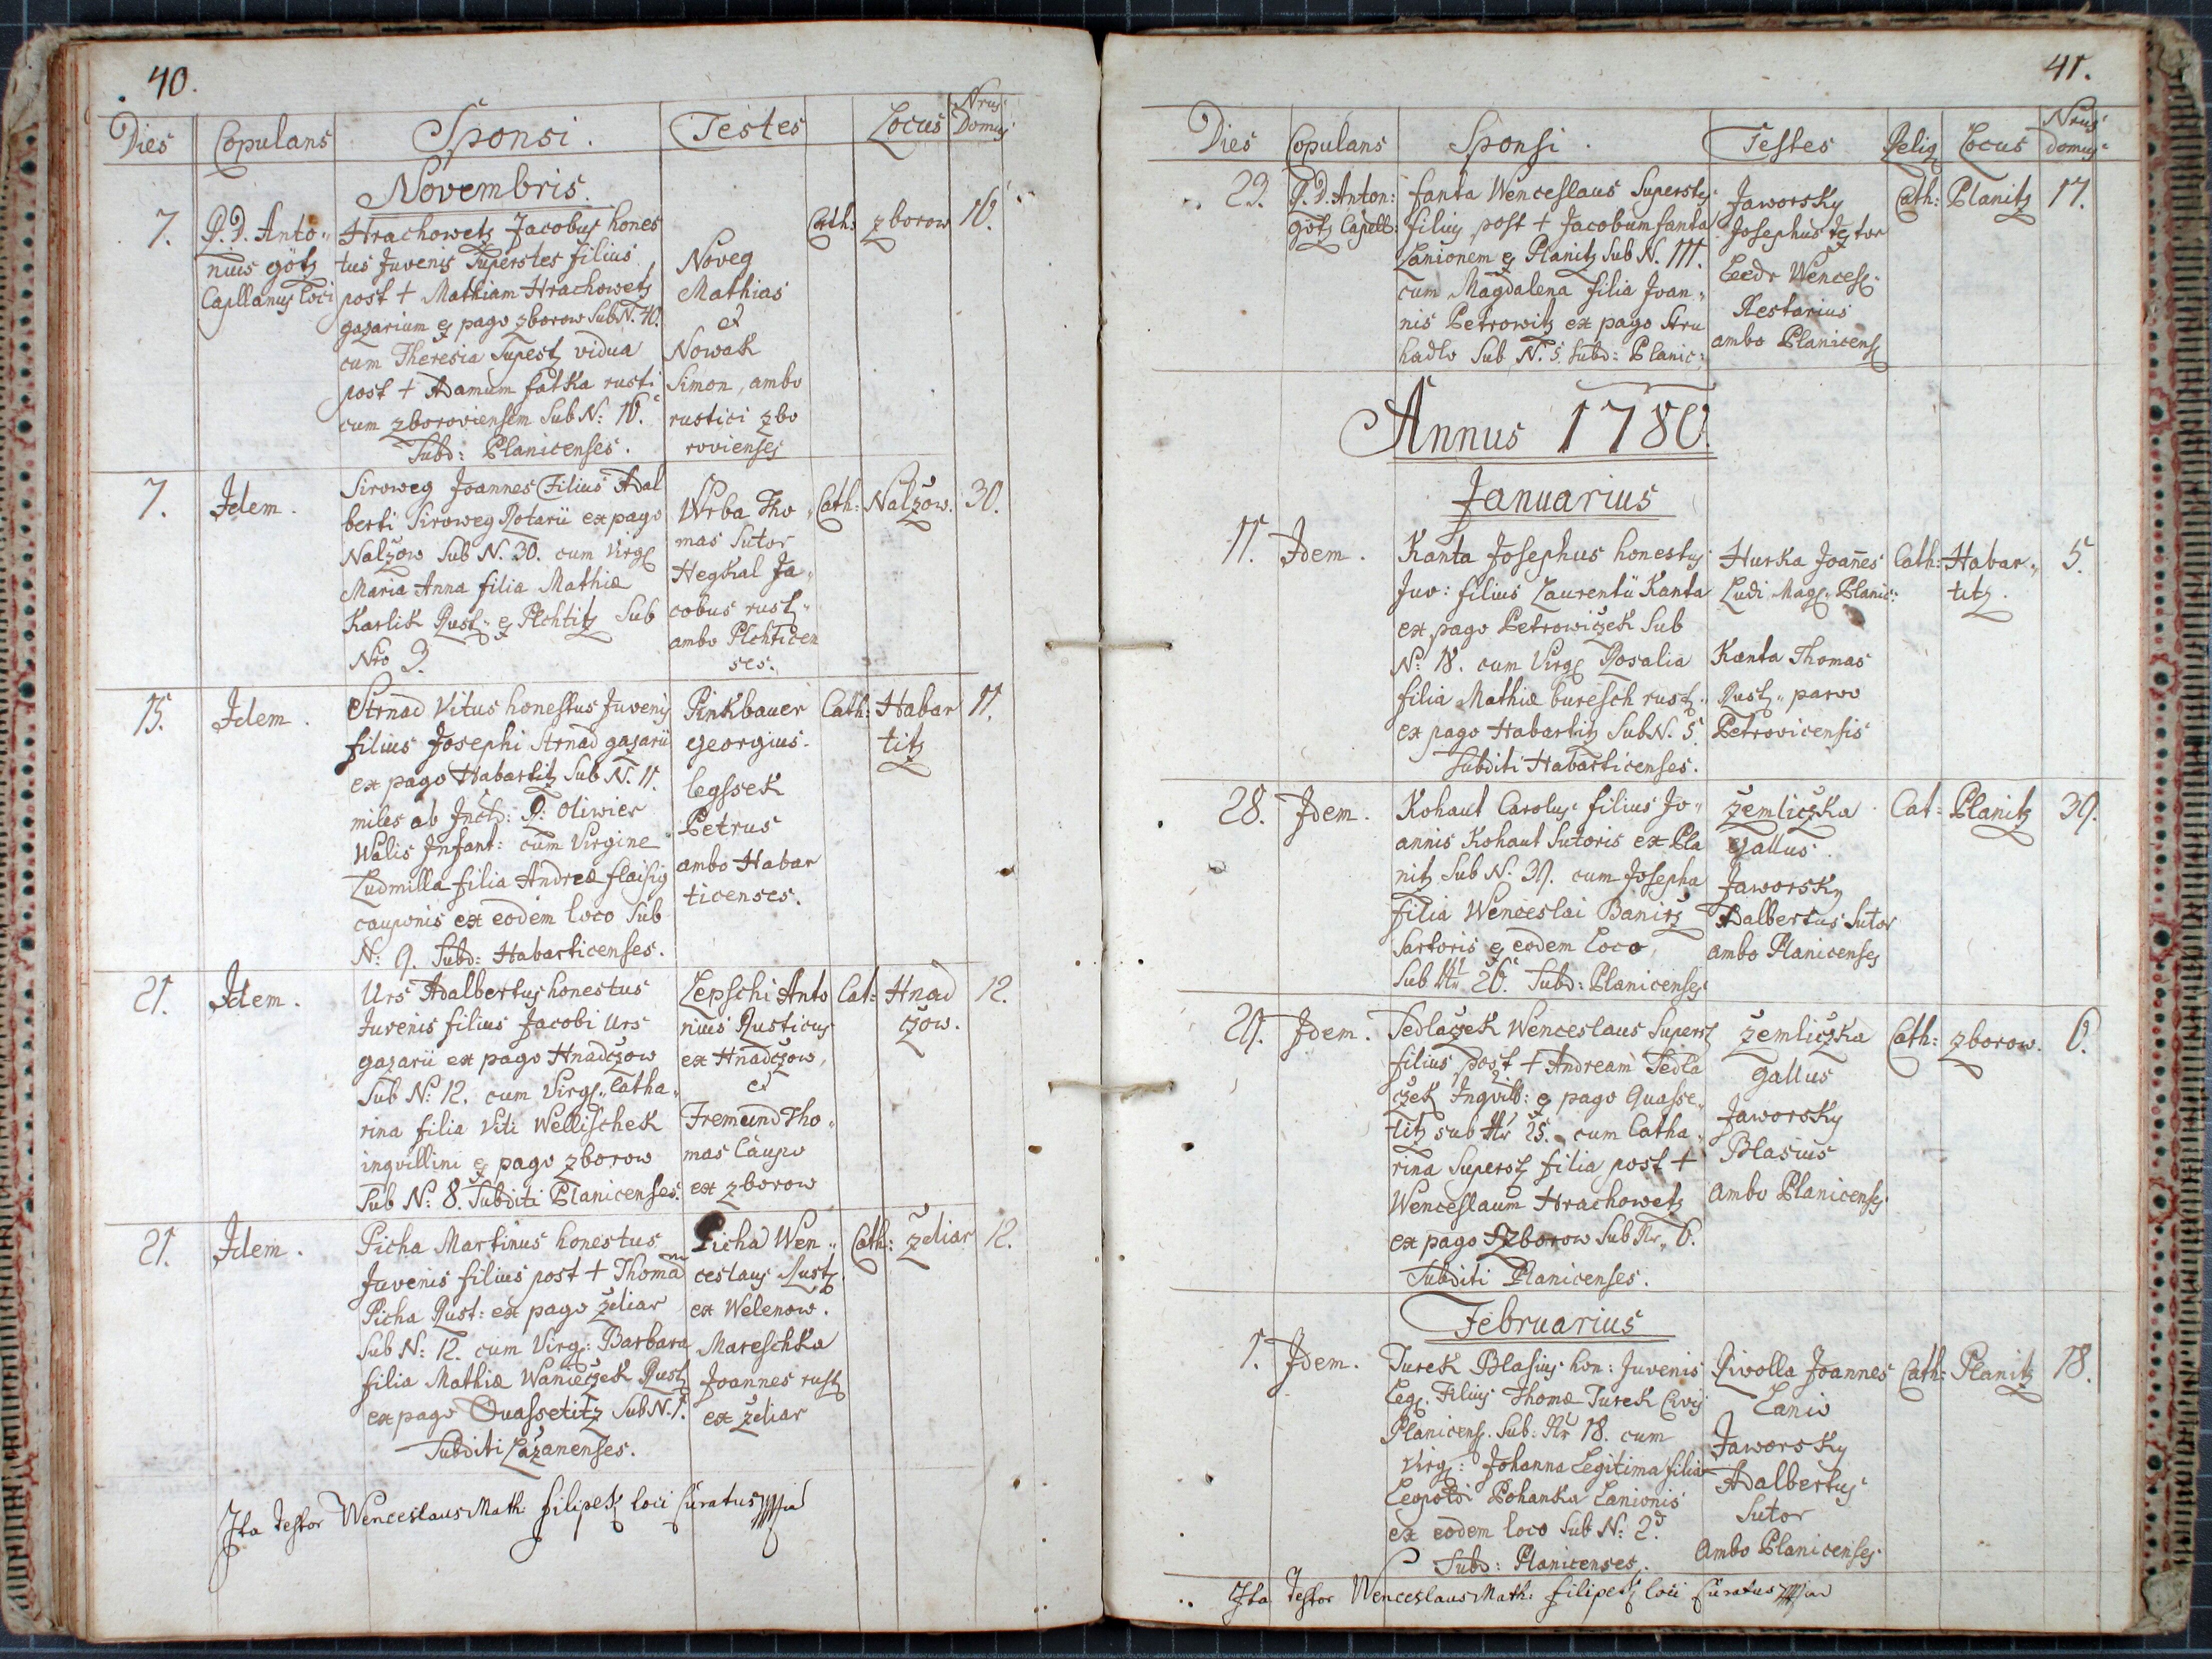 40.
Dies Copulans Sponsi. Testes Locus Nrus Domus
Novembris.
7. P. D. Anto„ Hrachowetz Jacobus hones Cath: zborow 16.
nius götz tus Juvenis Superstes filius Noveg
Capllanus Loci post + Mathiam Hrachowetz Mathias
gazarium ex pago zborow Sub N. 40. et
cum Theresia Superst vidua Nowak
post + Adamum fatka rusti Simon, ambo
cum zboroviensem Sub N: 16. rustici zbo
Subd: Planicenses. rovienses
7. Idem. Siroweg Joannes Filius Adal Wrba Tho„ Cath: Nalzow. 30.
berti Siroweg Rotarii ex pago mas Sutor
Nalzow Sub N. 30. cum Virg Hegkal Ja„
Maria Anna filia Mathiæ cobus rust„
Karlik Rust„ ex Plchtitz Sub ambo Plchticen
Nro 9. ses.
15. Idem. Strnad Vitus honestus Juvenis Pinkbauer Cath: Habar 11.
filius Josephi Strnad gazarii georgius. titz
ex pago Habartitz Sub N. 11. legssek
miles ab Inclt: D: Oliwier Petrus
Walis Infant: cum Virgine ambo Habar
Ludmilla filia Andreæ flaisig ticenses.
cauponis ex eodem loco Sub
N: 9. Subd: Habarticenses.
21. Idem. Urs Adalbertus honestus Lepschi Anto Cat: Hnad 12.
Juvenis filius Jacobi Urs nius Rusticus czow.
gazarii ex pago Hnadczow ex Hnadczow,
Sub No: 12. cum Virg„ Catha„ et
rina filia Viti Wellischek Fremund Tho„
inqvillini ex pago zborow mas Caupo
Sub No: 8. Subditi Planicenses. ex zborow
21. Idem. Picha Martinus honestus Picha Wen„ Cath: zdiar 12.
Juvenis filius post + Thomam ceslaus Rust.
Picha Rust: ex pago zdiar ex Welenow.
Sub N: 12. cum Virg: Barbara Mareschka
filia Mathiæ Wanieczek Rust Joannes rust
ex pago Quassetitz Sub N. 1. ex zdiar
Subditi Lazanenses.
Ita testor Wenceslaus Math: filipek loci Curatus mpia
41.
Dies Copulans Sponsi. Testes Relig Locus Nrus domus
29. P. D. Anton: fanta Wenceslaus Superstes Jaworsky Cath: Planitz 17.
götz Capell: filius post + Jacobum fanta Josephus textor
Lanionem ex Planitz Sub N. 111. Ledr Wencesl.
cum Magdalena filia Joan„ Restarius
nis Petrowitz ex pago Stru ambo Planicens
hadlo Sub N. 5. Subd: Planic:
Annus 1780.
Januarius
11. Idem. Kanta Josephus honestus Hurka Joañes Cath: Habar„ 5.
Juv: filius Laurentii Kanta Ludi Mag. Planic: titz.
ex pago Petrowiczek Sub
No: 18. cum Virg Rosalia Kanta Thomas
filia Mathiæ buresch rust„ Rust„ parvo
ex pago Habartitz Sub N. 5. Petrovicensis
Subditi Habarticenses.
28. Idem. Kohaut Carolus filius Jo„ zemliczka Cat: Planitz 39.
annis Kohaut Sutoris ex Pla gallus.
nitz Sub N: 39. cum Josepha Jaworsky
filia Wenceslai Banirz Adalbertus Sutor
Sartoris ex eodem Loco ambo Planicenses
Sub Nr 26. Subd: Planicenses
29. Idem. Sedlaczek Wenceslaus Superst zemliczka Cath: zborow. 6.
filius post + Andream Sedla gallus
czek Inqvil: ex pago Quasse„ Jaworsky
titz sub Nr 25. cum Catha„ Blasius
rina Superst filia post + ambo Planicenses
Wenceslaum Hrachowetz
ex pago zborow Sub Nr„ 6.
Subditi Planicenses.
Februarius
1. Idem. Turek Blasius hon: Juvenis Riwolla Joannes Cath: Planitz 18.
Leg. Filius Thomæ Turek Civis Lanio
Planicens. Sub: Nr 18. cum Jaworsky
Virg: Johanna Legitima filia Adalbertus
Leopoldi Pohanka Lanionis Sutor
ex eodem loco Sub N: 2d. ambo Planicenses
Subd: Planicenses.
Ita testor Wenceslaus Math: filipek loci Curatus mpia